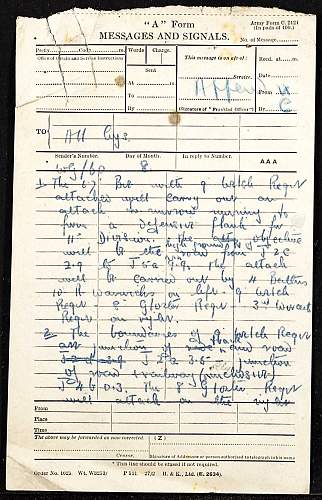 "A" Form
Army Form C. 2121
(In pads of 100.)
MESSAGES AND SIGNALS.
No. of Message
Prefix Code m.
Words Charge.
This message is on a/c of :
Recd. at m.
Office of Origin and Service Instructions
Sent
Date
At m.
Service.
From
To
By
(Signature of "Franking Officer")
By
TO
All Coys.
Sender's Number.
Day of Month.
In reply to Number.
AAA
8
1. The Bde with 9 Welch Regt
attached will carry out an
attack tomorrow morning to
form a defensive flank for
11th Division. The objective
will be the high ground
to J 5 a 9.9. The attack
will be carried out by Battns
10 R Warwicks on left 9 Welch
Regt 8 Gloster Regt 3rd Worcest
Regt on right.
2 The boundaries of 9 Welch Regt
are junction of track and road
junction
of road & railway
The 8 Gloster Regt
will attack on the right
From
Place
Time
The above may be forwarded as now corrected.
(Z)
Censor.
Signature of Addressor or person authorised to telegraph in his name
* This line should be erased if not required.
Order No. 1625. Wt. W3253/ P 511. 27/2 H. & K., Ltd. (E. 2634).